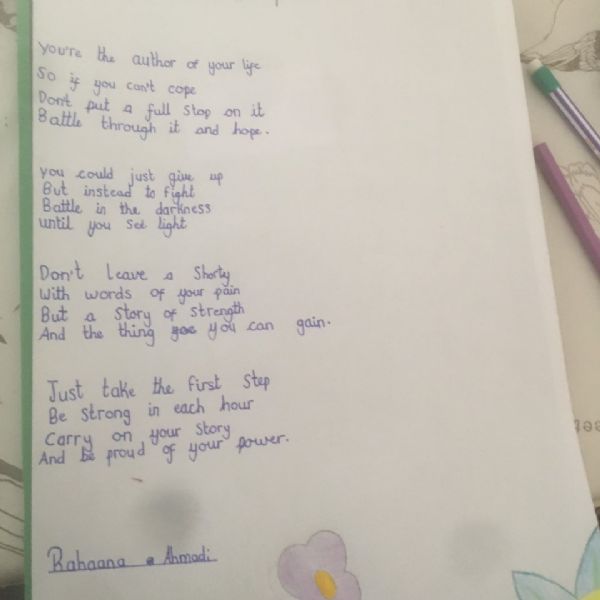 you're the author of your life
So if you can't cope
Don't put a full stop on it
Battle through it and hope.
you could just give up
But instead to fight
Battle in the darkness
until you see light
Don't leave a Shorty
With words of your pain
But a Story of Strength
And the thing you can gain.
Just take the first Step
Be Strong in each hour
Carry on your Story
And be proud of your power.
Rahaana Ahmadi